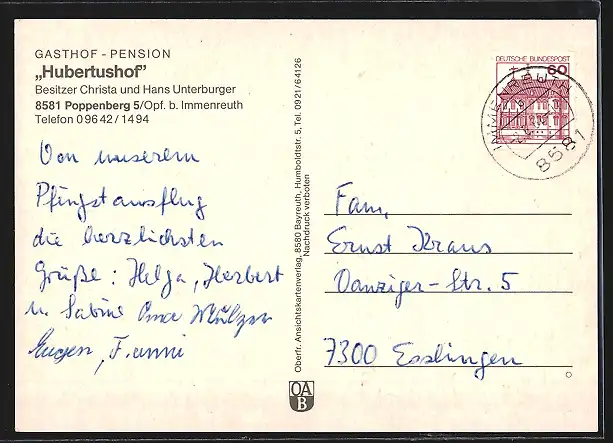 GASTHOF - PENSION
„Hubertushof”
Besitzer Christa und Hans Unterburger
8581 Poppenberg 5/Opf. b. Immenreuth
Telefon 09642/1494
Von unserem
Pfingstausflug
die herzlichsten
Grüße: Helga, Herbert
u. Sabine Oma
Eugen, Fanni
Oberfr. Ansichtskartenverlag, 8580 Bayreuth, Humboldtstr. 5, Tel. 0921/64126
Nachdruck verboten
OA
B
DEUTSCHE BUNDESPOST
60
IMMENREUTH
8581
Fam.
Ernst Kraus
Danziger-Str. 5
7300 Esslingen